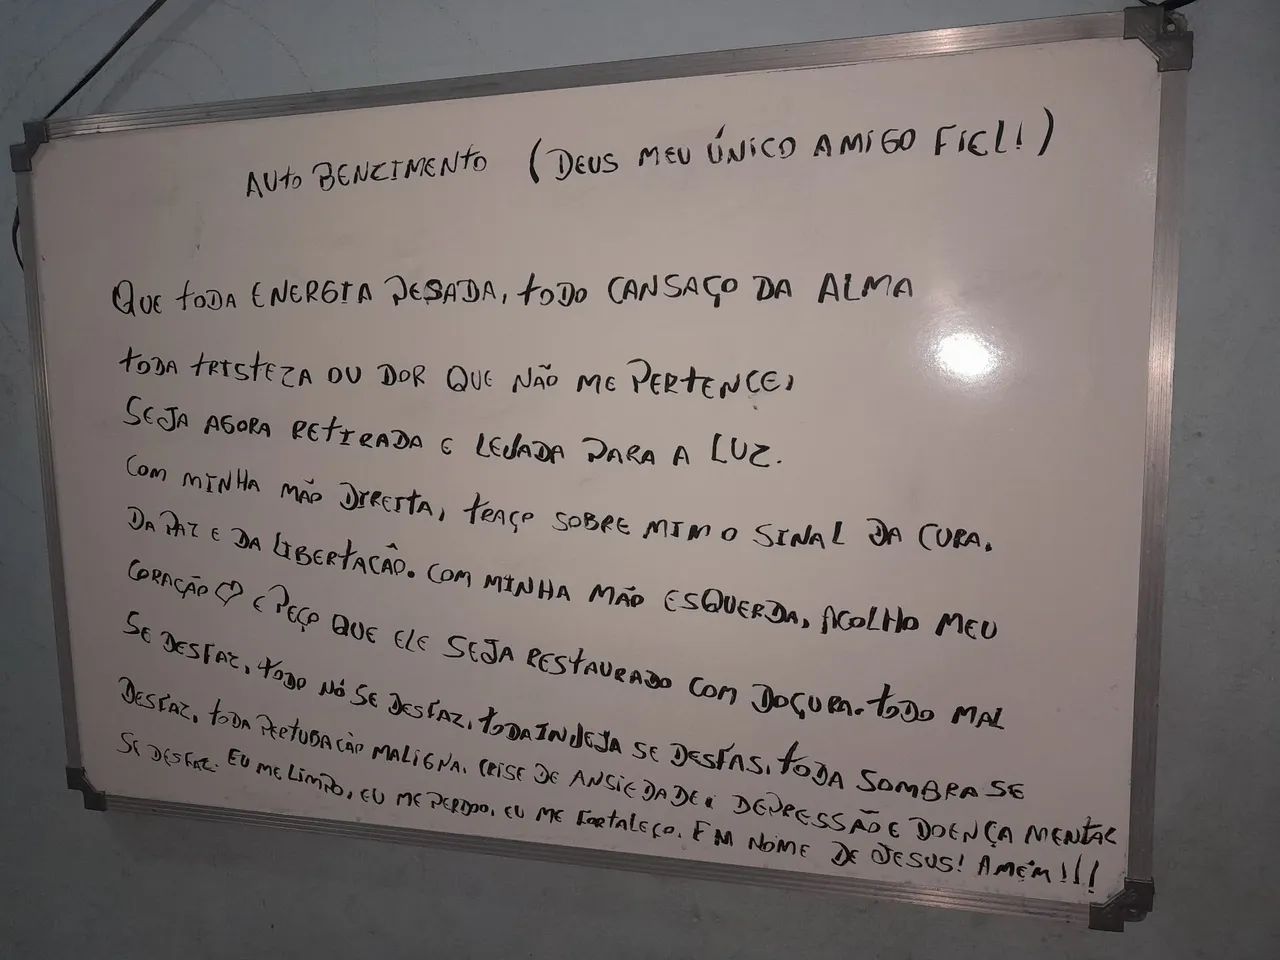 AUTO BENZIMENTO (DEUS MEU ÚNICO AMIGO FIEL!)
QUE TODA ENERGIA PESADA, TODO CANSAÇO DA ALMA
TODA TRISTEZA OU DOR QUE NÃO ME PERTENCE,
SEJA AGORA RETIRADA E LEVADA PARA A LUZ.
COM MINHA MÃO DIREITA, TRAÇO SOBRE MIM O SINAL DA CURA,
DA PAZ E DA LIBERTAÇÂO. COM MINHA MÃO ESQUERDA, ACOLHO MEU
CORAÇÃO ♡ E PEÇO QUE ELE SEJA RESTAURADO COM DOÇURA. TODO MAL
SE DESFAZ, TODO NÓ SE DESFAZ, TODA INVEJA SE DESFAS, TODA SOMBRA SE
DESFAZ, TODA PERTUBAÇÃO MALIGNA, CRISE DE ANSIEDADE, DEPRESSÃO E DOENÇA MENTAL
SE DESFAZ. EU ME LIMPO, EU ME PERDOO, EU ME FORTALEÇO. EM NOME DE JESUS! AMÉM!!!